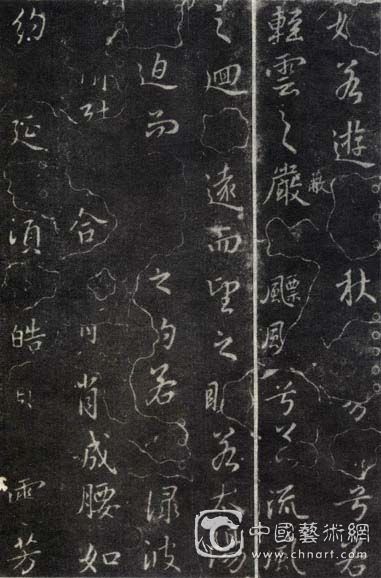 若遊秋兮若
輕雲之嚴蔽飄兮流風
之迴遠而望之若太陽
迫而之若淥波
合肖成腰如
約延項皓芳
中國藝術網
www.chnart.com